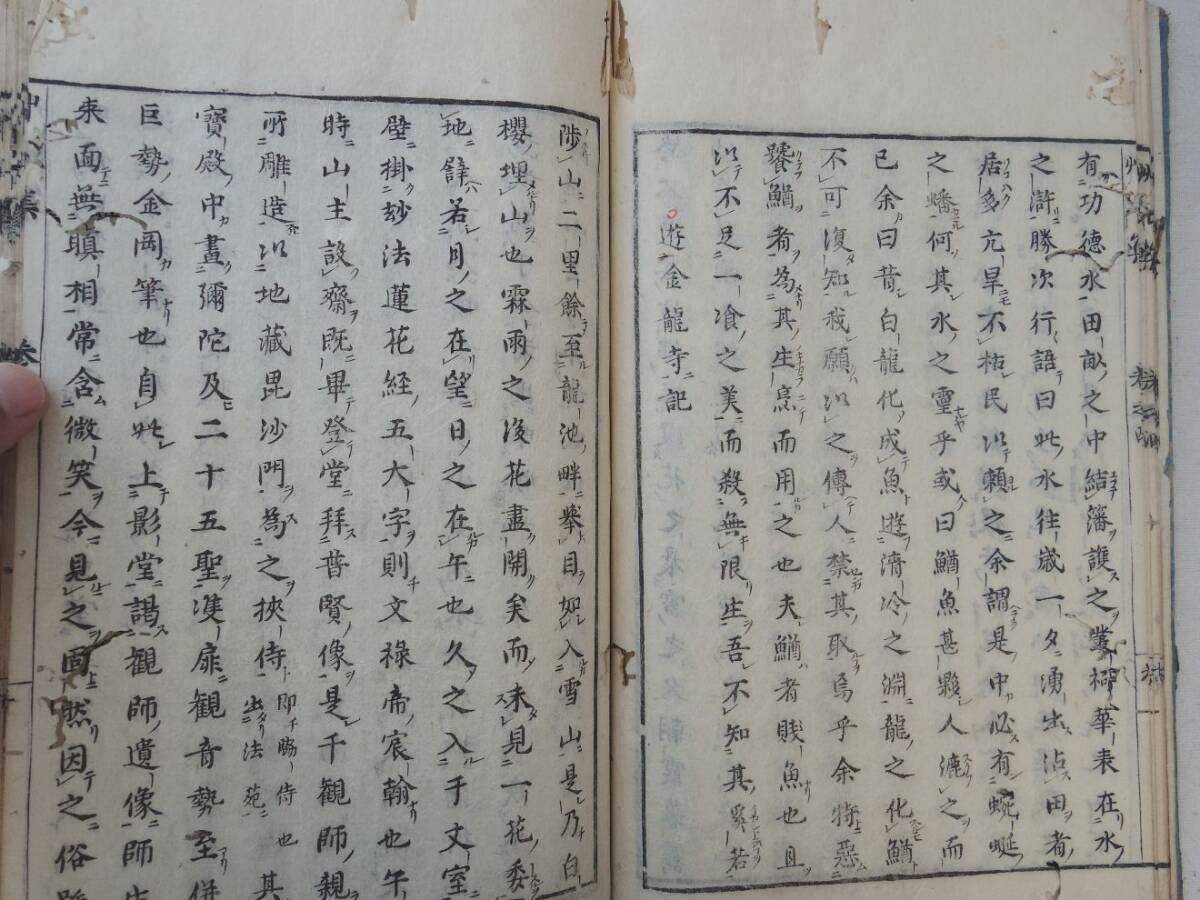 有功德水田畝之中結藩護之叢祠華表在水
之滸勝次行語曰此水往歲一夕湧出沾田者
居多亢旱不枯民以賴之余謂是中必有蜿蜒
之蟠何其水之靈乎或曰鰌魚甚夥人漉之而
已余曰昔白龍化成魚遊清冷之淵龍之化鰌
不可復知我願以之傳人禁其取烏乎余特惡
饕鰌者為其生烹而用之也夫鰌者賤魚也且
以不足一飡之美而殺無限生吾不知其若
遊金龍寺記
陟山二里餘至龍池畔擧目如入雪山是乃白
櫻埋山也霖雨之後花盡開矣而未見一花委
地辟若月之在望日之在午也久之入于文室
壁掛玅法蓮花經五大字則文祿帝宸翰也午
時山主設齋既畢登堂拜普賢像是千觀師親
所雕造以地藏毘沙門為之挾侍即千脇侍也出法苑其
寶殿中畫彌陀及二十五聖隻扉觀音勢至併
巨勢金岡筆也自此上影堂謁觀師遺像師
来面無瞋相常含微笑今見之固然因之俗